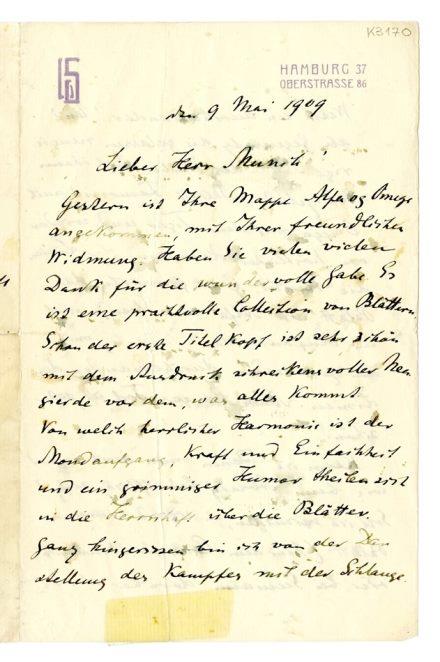 K3170
HAMBURG 37
OBERSTRASSE 86
den 9 Mai 1909
Lieber Herr Munch!
Gestern ist Ihre Mappe Alfa og Omega
angekommen, mit Ihrer freundlichen
Widmung. Haben Sie vielen vielen
Dank für die wundervolle Gabe Es
ist eine prachtvolle Collection von Blättern
Schon der erste Titel Kopf ist sehr schön
mit dem Ausdruck schreckensvoller Neu
gierde vor dem, was alles kommt
Von welch herrlicher Harmonie ist der
Mondaufgang, Kraft und Einfachheit
und ein grimmiger Humor theilen sich
in die Herrschaft über die Blätter.
Ganz hingerissen bin ich von der Dar
stellung des Kampfes mit der Schlange.